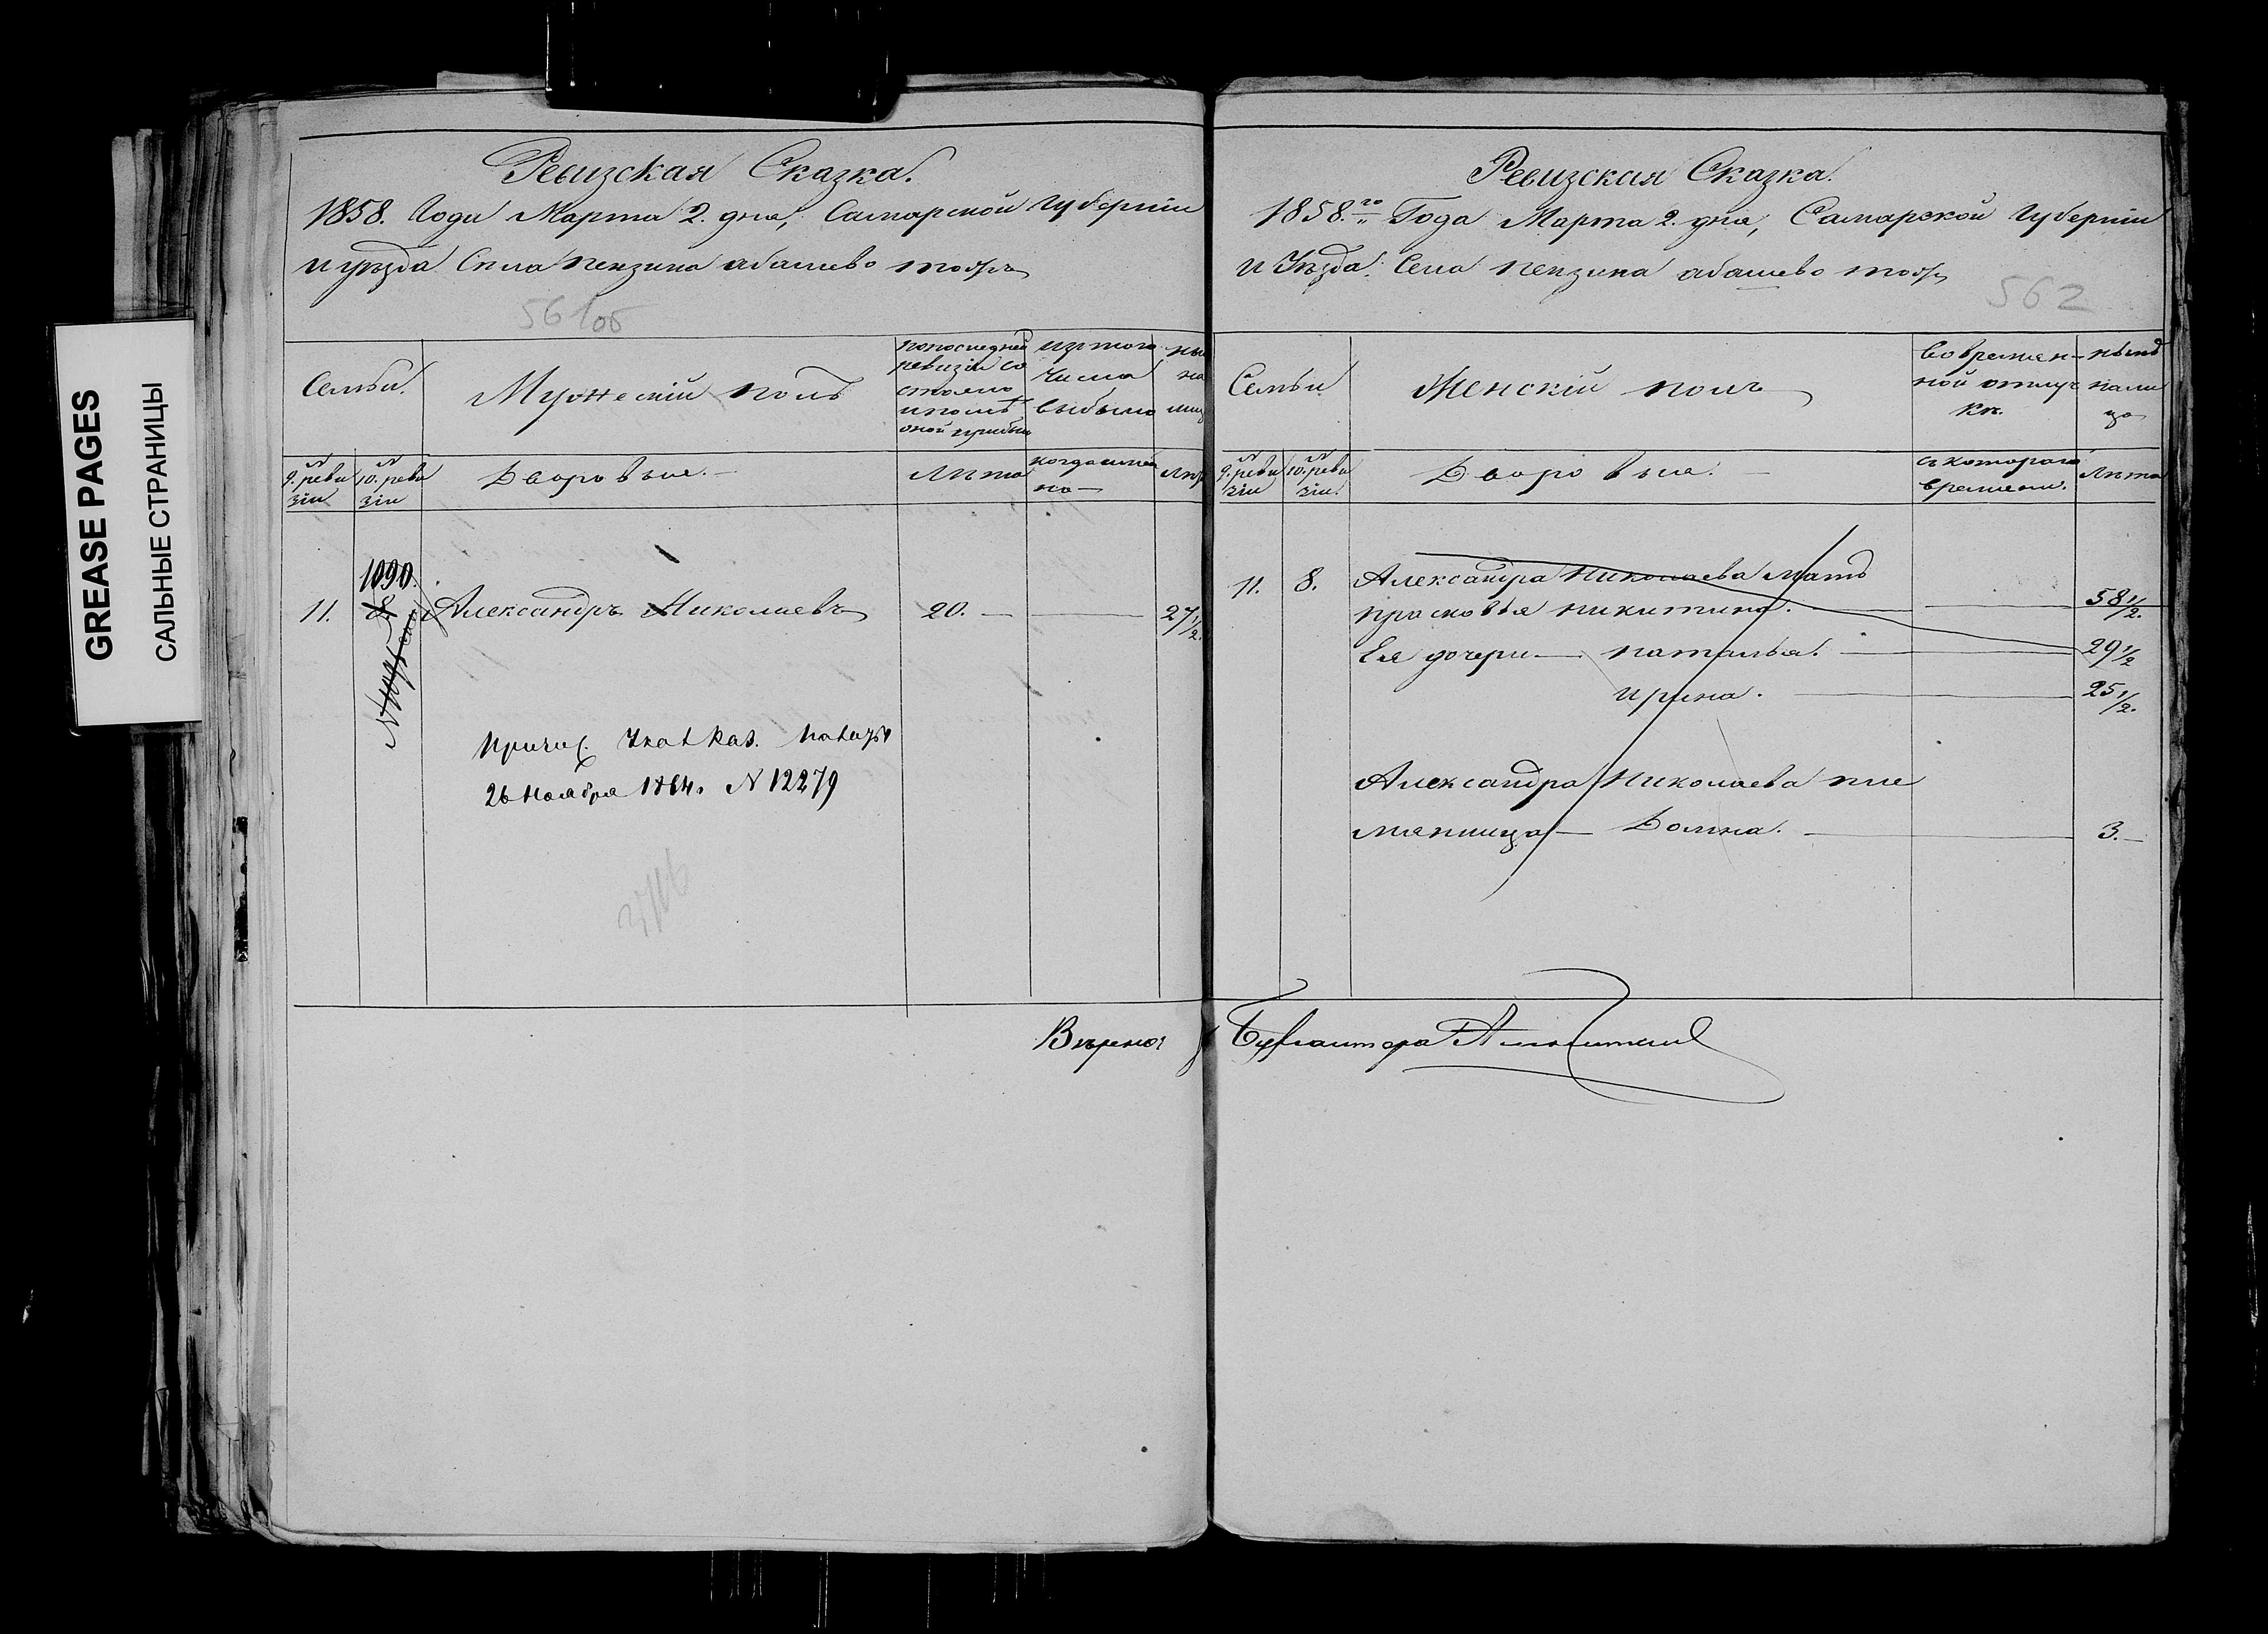 GREASE PAGES
САЛЬНЫЕ СТРАНИЦЫ
Ревизская Сказка.
1858. Года Марта 2. дня, Самарской Губернии
и уѣзда Села Пензина абашево тожъ
561об
Семьи.
Мужескій полъ
попоследней ревизіи состояло ипослѣ оной прибыло
изтого числа выбыло
ны на лиц
№ 9. реви зіи
№ 10. реви зіи
Дворовые.
Лѣта
когда имен но
Лѣт
1090.
11. 8 Александръ Николаевъ 20. — 27 1/2.
Причис. Каз.
26 Ноября 1864. N 12279
Вѣрно:
Ревизская Сказка.
1858.го Года Марта 2. дня, Самарской Губерніи
и Уѣзда. Села пензина абашево тожъ
562
Семьи
Женскій полъ
Во времен- ной отлуч кѣ.
нынѣ нали цо
№ 9. реви зіи
№ 10. реви зіи.
Дворовые.
съкотораго времени.
Лѣта
11. 8. Александра Николаева мать
прасковья никитина. 58 1/2.
Ея дочери — наталья. 29 1/2
ирина. 25 1/2.
Александра Николаева пле
мянница — Домна. 3. —
Бухгалтера